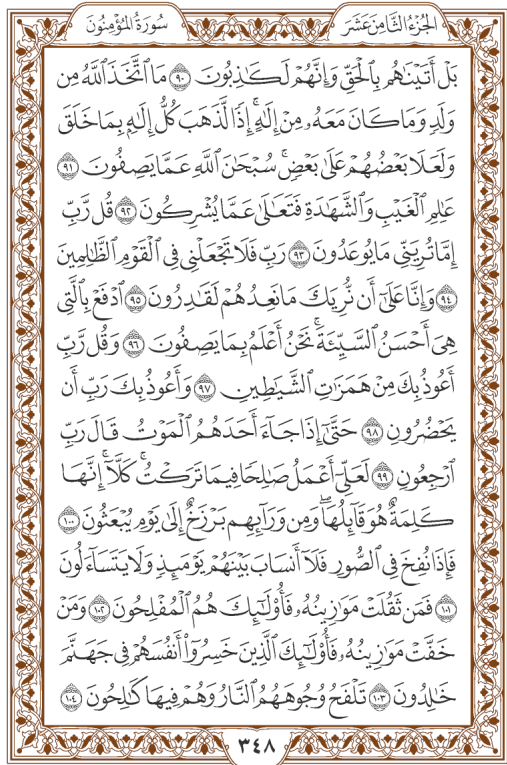 الجُزْءُ الثَّامِنَ عَشَرَ
سُورَةُ المُؤْمِنُونَ
بَلۡ أَتَيۡنَٰهُم بِٱلۡحَقِّ وَإِنَّهُمۡ لَكَٰذِبُونَ ٩٠ مَا ٱتَّخَذَ ٱللَّهُ مِن
وَلَدٖ وَمَا كَانَ مَعَهُۥ مِنۡ إِلَٰهٍۚ إِذٗا لَّذَهَبَ كُلُّ إِلَٰهِۭ بِمَا خَلَقَ
وَلَعَلَا بَعۡضُهُمۡ عَلَىٰ بَعۡضٖۚ سُبۡحَٰنَ ٱللَّهِ عَمَّا يَصِفُونَ ٩١
عَٰلِمِ ٱلۡغَيۡبِ وَٱلشَّهَٰدَةِ فَتَعَٰلَىٰ عَمَّا يُشۡرِكُونَ ٩٢ قُل رَّبِّ
إِمَّا تُرِيَنِّي مَا يُوعَدُونَ ٩٣ رَبِّ فَلَا تَجۡعَلۡنِي فِي ٱلۡقَوۡمِ ٱلظَّٰلِمِينَ
٩٤ وَإِنَّا عَلَىٰٓ أَن نُّرِيَكَ مَا نَعِدُهُمۡ لَقَٰدِرُونَ ٩٥ ٱدۡفَعۡ بِٱلَّتِي
هِيَ أَحۡسَنُ ٱلسَّيِّئَةَۚ نَحۡنُ أَعۡلَمُ بِمَا يَصِفُونَ ٩٦ وَقُل رَّبِّ
أَعُوذُ بِكَ مِنۡ هَمَزَٰتِ ٱلشَّيَٰطِينِ ٩٧ وَأَعُوذُ بِكَ رَبِّ أَن
يَحۡضُرُونِ ٩٨ حَتَّىٰٓ إِذَا جَآءَ أَحَدَهُمُ ٱلۡمَوۡتُ قَالَ رَبِّ
ٱرۡجِعُونِ ٩٩ لَعَلِّيٓ أَعۡمَلُ صَٰلِحٗا فِيمَا تَرَكۡتُۚ كَلَّآۚ إِنَّهَا
كَلِمَةٌ هُوَ قَآئِلُهَاۖ وَمِن وَرَآئِهِم بَرۡزَخٌ إِلَىٰ يَوۡمِ يُبۡعَثُونَ ١٠٠
فَإِذَا نُفِخَ فِي ٱلصُّورِ فَلَآ أَنسَابَ بَيۡنَهُمۡ يَوۡمَئِذٖ وَلَا يَتَسَآءَلُونَ
١٠١ فَمَن ثَقُلَتۡ مَوَٰزِينُهُۥ فَأُوْلَٰٓئِكَ هُمُ ٱلۡمُفۡلِحُونَ ١٠٢ وَمَنۡ
خَفَّتۡ مَوَٰزِينُهُۥ فَأُوْلَٰٓئِكَ ٱلَّذِينَ خَسِرُوٓاْ أَنفُسَهُمۡ فِي جَهَنَّمَ
خَٰلِدُونَ ١٠٣ تَلۡفَحُ وُجُوهَهُمُ ٱلنَّارُ وَهُمۡ فِيهَا كَٰلِحُونَ ١٠٤
٣٤٨